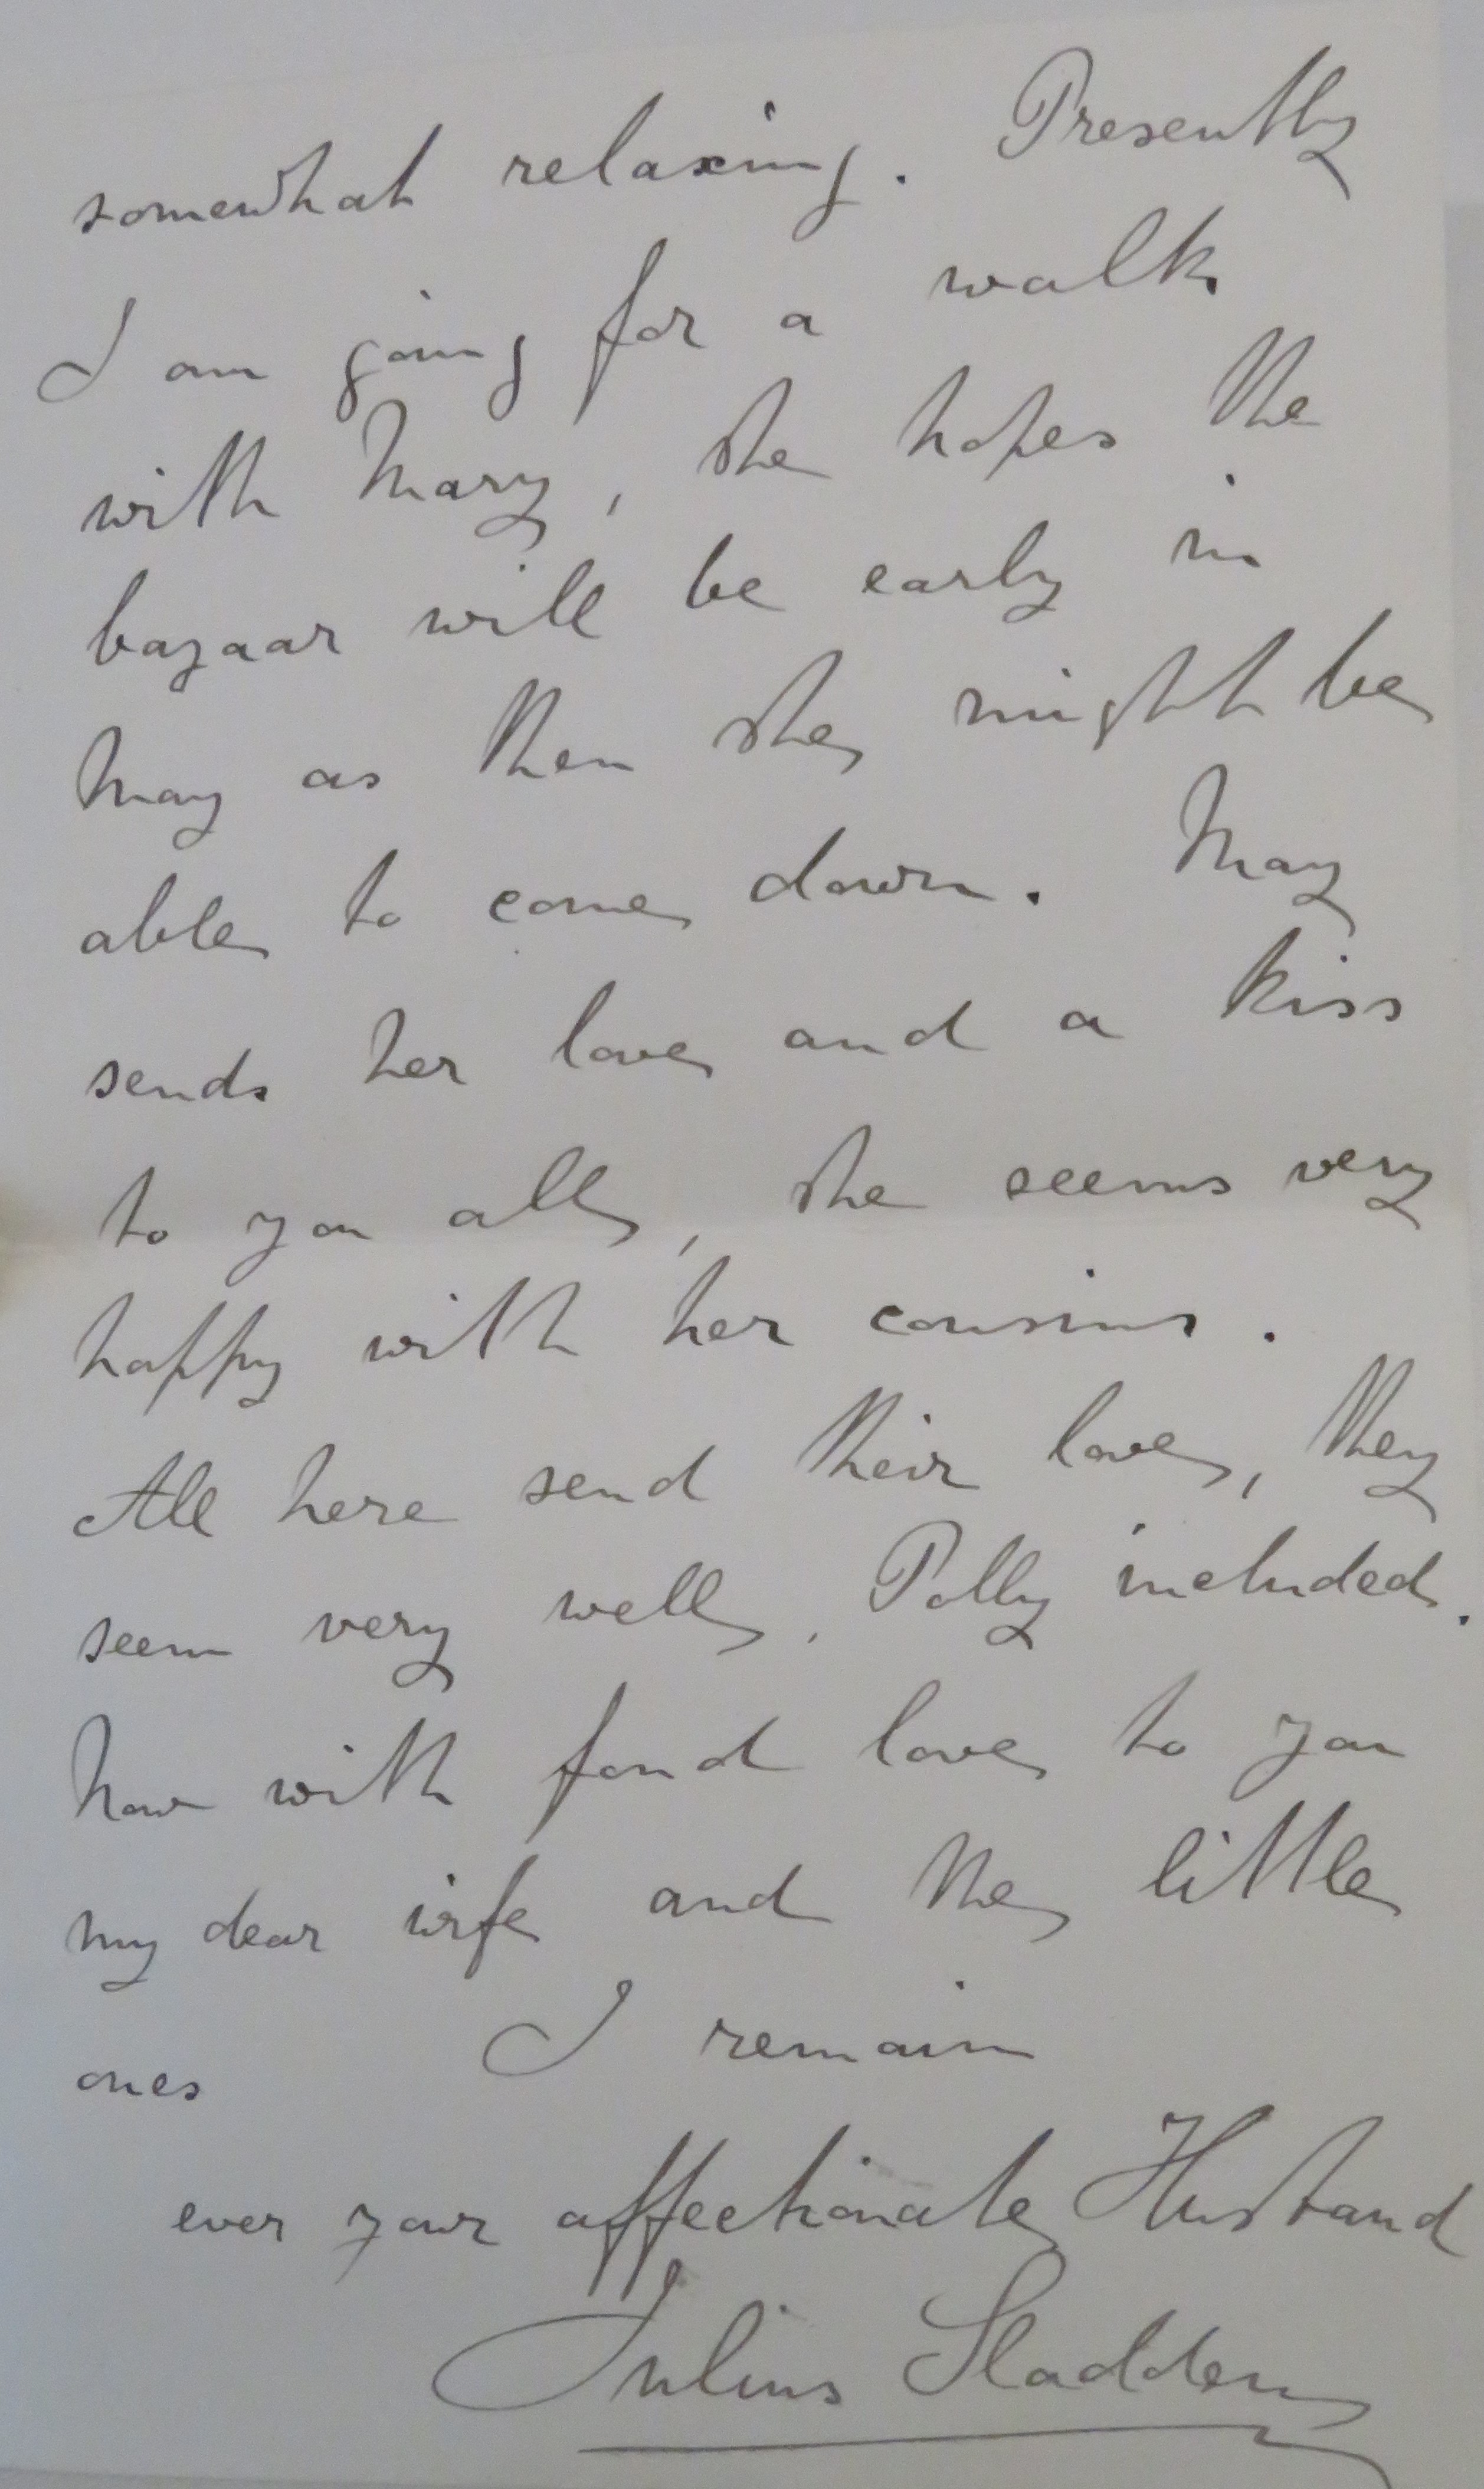 somewhat relaxing. Presently
I am going for a walk
with Mary, she hopes the
bazaar will be early in
May as then she might be
able to come down. May
sends her love and a kiss
to you all, she seems very
happy with her cousins.
All here send their love, they
seem very well, Polly included.
Now with fond love to you
my dear wife and the little
ones I remain
ever your affectionate Husband
Julius Sladden